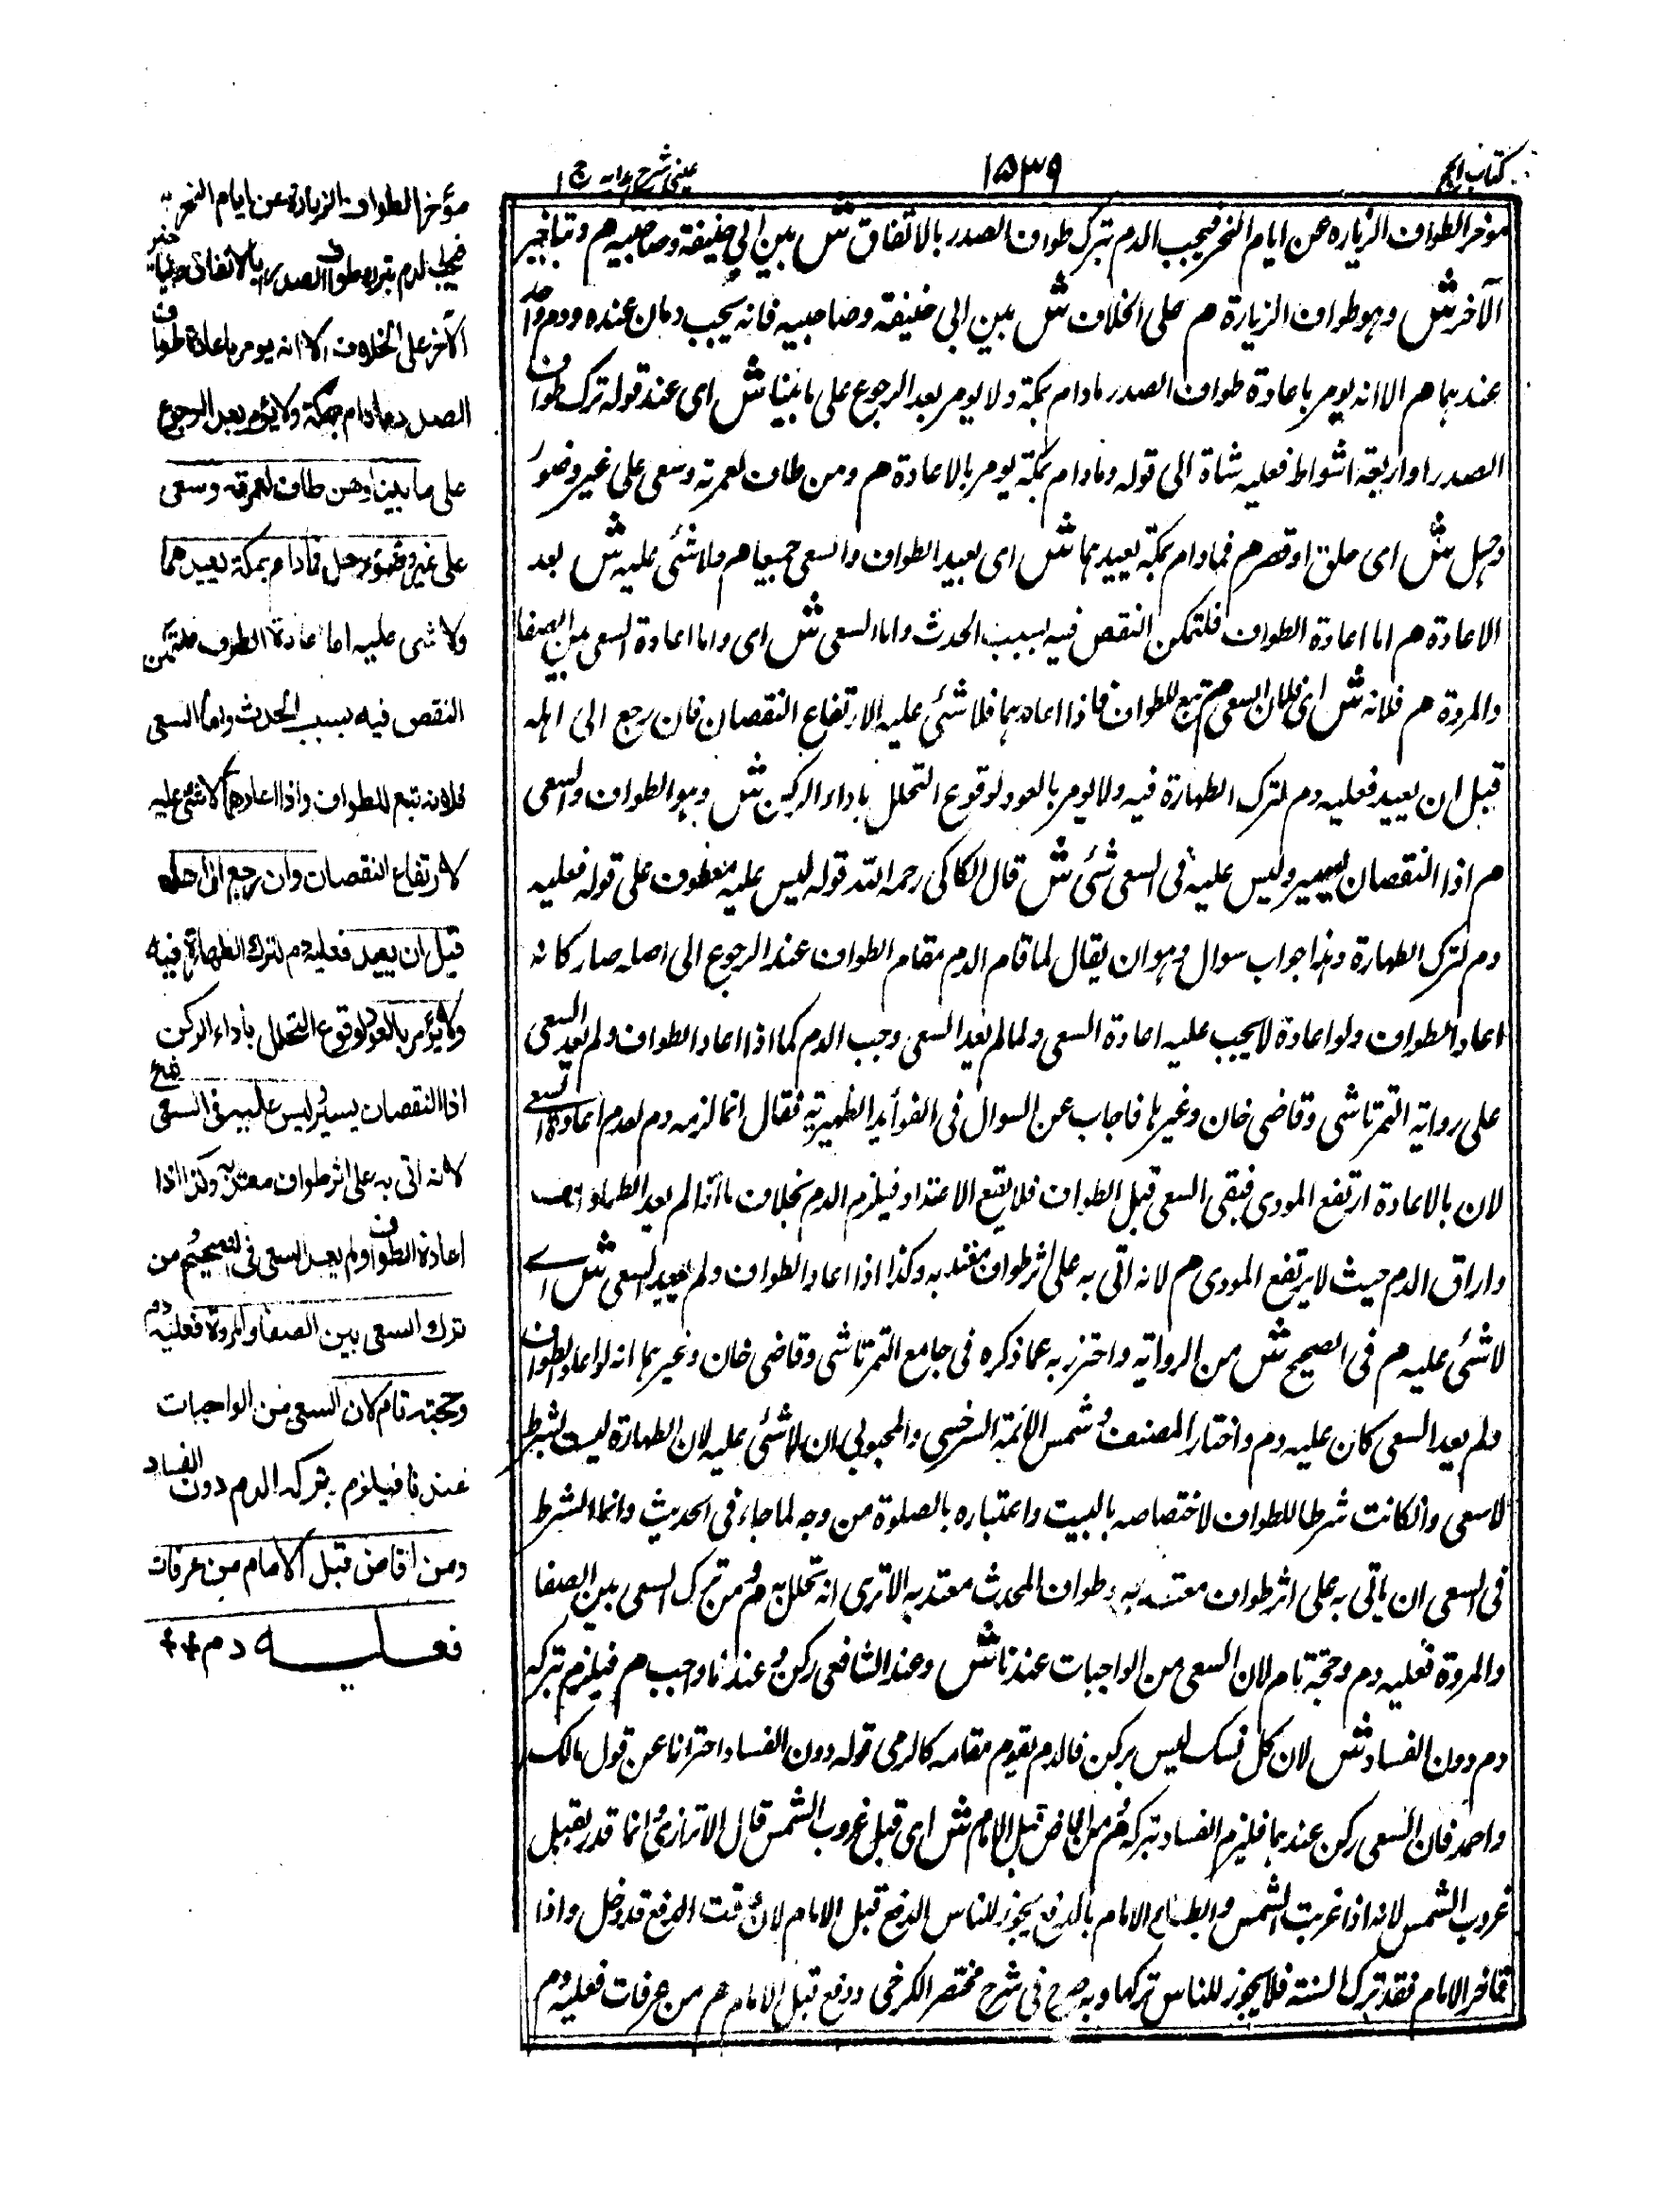 كتاب الحج
١٥٣٩
عينى شرح هدايه ج ١
مؤخر الطواف الزيارة عن ايام النحر فيجب الدم بترك طواف الصدر بالاتفاق ش بين ابى حنيفة وصاحبيه هم وبتاخير
الآخر ش وهو طواف الزيارة هم على الخلاف ش بين ابى حنيفة وصاحبيه فانه يجب دمان عنده ودم واحد
عندهما هم الا انه يومر باعادة طواف الصدر مادام بمكة ولا يومر بعد الرجوع على ما بينا ش اى عند قوله ترك طواف
الصدر او اربعة اشواط فعليه شاة الى قوله ومادام بمكة يومر بالاعادة هم ومن طاف لعمرته وسعى على غير وضوء
وحل ش اى حلق او قصر هم فمادام بمكة يعيدهما ش اى يعيد الطواف والسعى جميعا هم ولا شئ عليه ش بعد
الاعادة هم اما اعادة الطواف فلتمكن النقص فيه بسبب الحدث واما السعى ش اى واما اعادة السعى بين الصفا
والمروة هم فلانه ش اى فلان السعى هم تبع للطواف فاذا اعادهما فلا شئ عليه لارتفاع النقصان فان رجع الى اهله
قبل ان يعيد فعليه دم لترك الطهارة فيه ولا يومر بالعود لوقوع التحلل باداء الركن ش وهو الطواف والسعى
هم اذا النقصان يسير وليس عليه فى السعى شئ ش قال الكاكى رحمه الله قوله ليس عليه معطوف على قوله فعليه
دم لترك الطهارة وهذا جواب سوال وهو ان يقال لما قام الدم مقام الطواف عند الرجوع الى اصله صار كانه
اعاد الطواف ولو اعاده لا يجب عليه اعادة السعى ولما لم يعد السعى وجب الدم كما اذا اعاد الطواف ولم يعد السعى
على رواية التمرتاشى وقاضى خان وغيرها فاجاب عن السوال فى الفوايد الظهيرية فقال انما لزمه دم لعدم اعادة السعى
لان بالاعادة ارتفع المودى فبقى السعى قبل الطواف فلا يقع الاعتداد فيلزم الدم بخلاف ما اذا لم يعد الطواف
واراق الدم حيث لا يرتفع المودى هم لانه اتى به على اثر طواف معتد به وكذا اذا اعاد الطواف ولم يعد السعى ش اى
لا شئ عليه هم فى الصحيح ش من الرواية واحترز به عما ذكره فى جامع التمرتاشى وقاضى خان وغيرهما انه لو اعاد الطواف
ولم يعد السعى كان عليه دم واختار المصنف وشمس الائمة السرخسى والمحبوبى ان لا شئ عليه لان الطهارة ليست بشرط
لاسعى وانكانت شرطا للطواف لاختصاصه بالبيت واعتباره بالصلوة من وجه لما جاء فى الحديث وانما الشرط
فى السعى ان ياتى به على اثر طواف معتد به وطواف المحدث معتد به الا ترى انه تحلل به هم ومن ترك السعى بين الصفا
والمروة فعليه دم وحجة تام لان السعى من الواجبات عندنا ش وعند الشافعى ركن وعندنا واجب هم فيلزم بتركه
دم دون الفساد ش لان كل نسك ليس بركن فالدم يقوم مقامه كالرمى قوله دون الفساد احترازا عن قول مالك
واحمد فان السعى ركن عندهما فيلزم الفساد بتركه هم ومن افاض قبل الامام ش اى قبل غروب الشمس قال الاترازى انما قدر بقبل
غروب الشمس لانه اذا غربت الشمس وابطاء الامام بالدفع يجوز للناس الدفع قبل الامام لان وقت الدفع قد دخل واذا
تاخر الامام فقد ترك السنة فلا يجوز للناس تركها وبه صرح فى شرح مختصر الكرخى ودفع قبل الامام هم من عرفات فعليه دم
مؤخر الطواف الزيارة عن ايام النحر
فيجب الدم بترك طواف الصدر بالاتفاق وبتاخير
الآخر على الخلاف الا انه يومر باعادة طواف
الصدر مادام بمكة ولا يؤمر بعد الرجوع
على ما بينا ومن طاف لعمرته وسعى
على غير وضوء وحل فمادام بمكة يعيدهما
ولا شى عليه اما اعادة الطواف فلتمكن
النقص فيه بسبب الحدث واما السعى
فلانه تبع للطواف واذا اعادهما لا شئ عليه
لارتفاع النقصان وان رجع الى اهله
قبل ان يعيد فعليه دم لترك الطهارة فيه
ولا يؤمر بالعود لوقوع التحلل باداء الركن
اذا النقصان يسير وليس عليه فى السعى شئ
لانه اتى به على اثر طواف معتد به وكذا اذا
اعادة الطواف ولم يعد السعى فى الصحيح ومن
ترك السعى بين الصفا والمروة فعليه دم
وحجته تام لان السعى من الواجبات
عندنا فيلزم بتركه الدم دون الفساد
ومن افاض قبل الامام من عرفات
فعليه دم